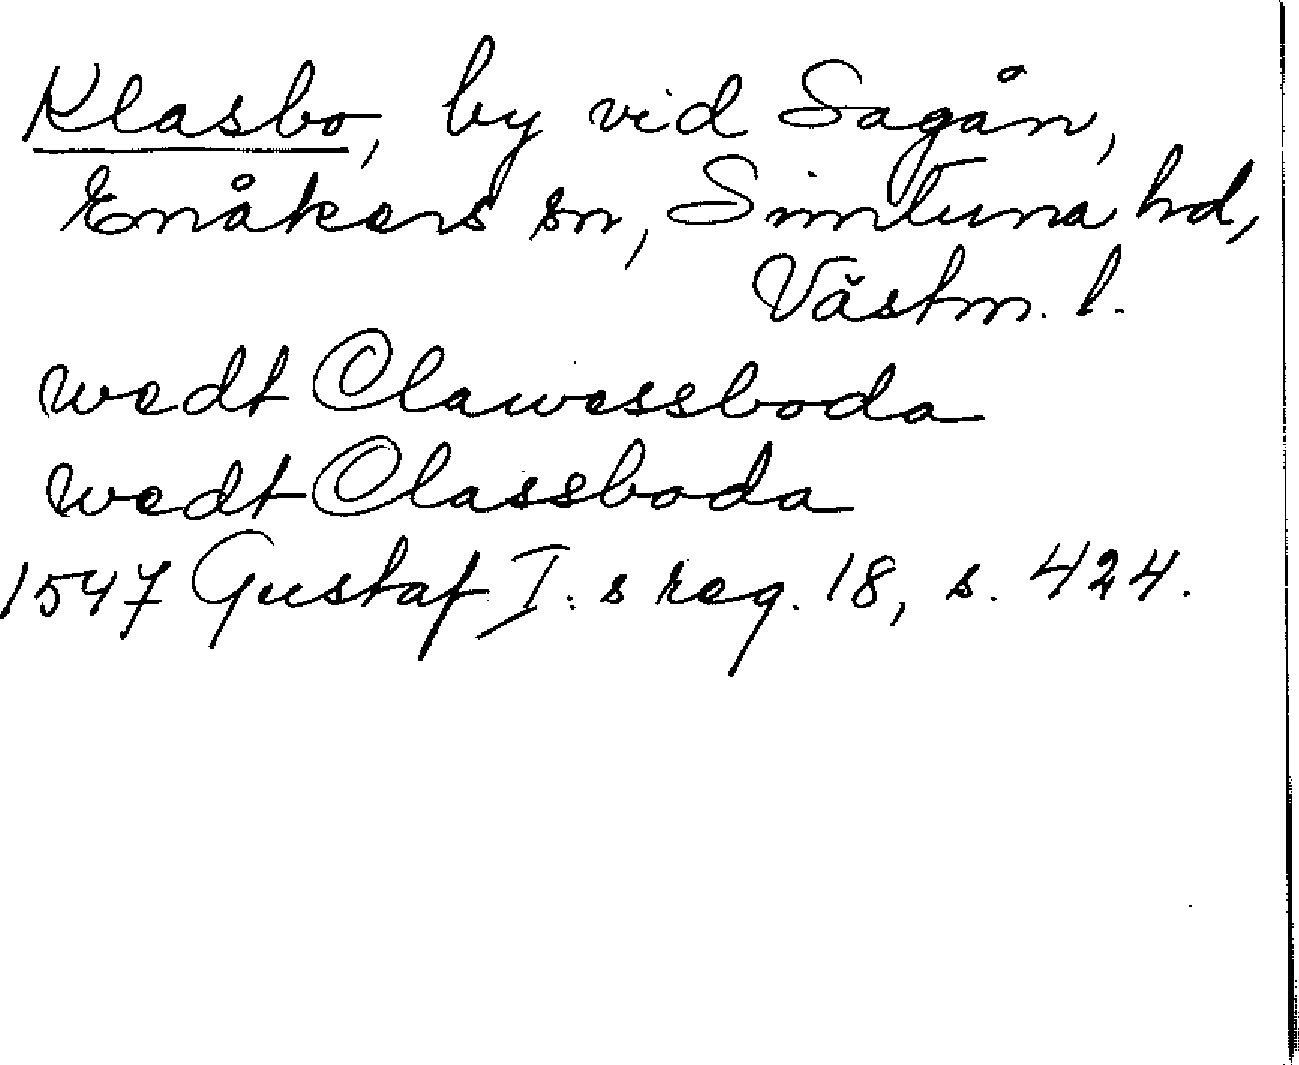 Klasbo, by vid Sagån,
Enåkers sn, Simtuna hd,
Västm. l.
wedt Clawessboda
wedt Classboda
1547 Gustaf I:s reg. 18, s. 424.